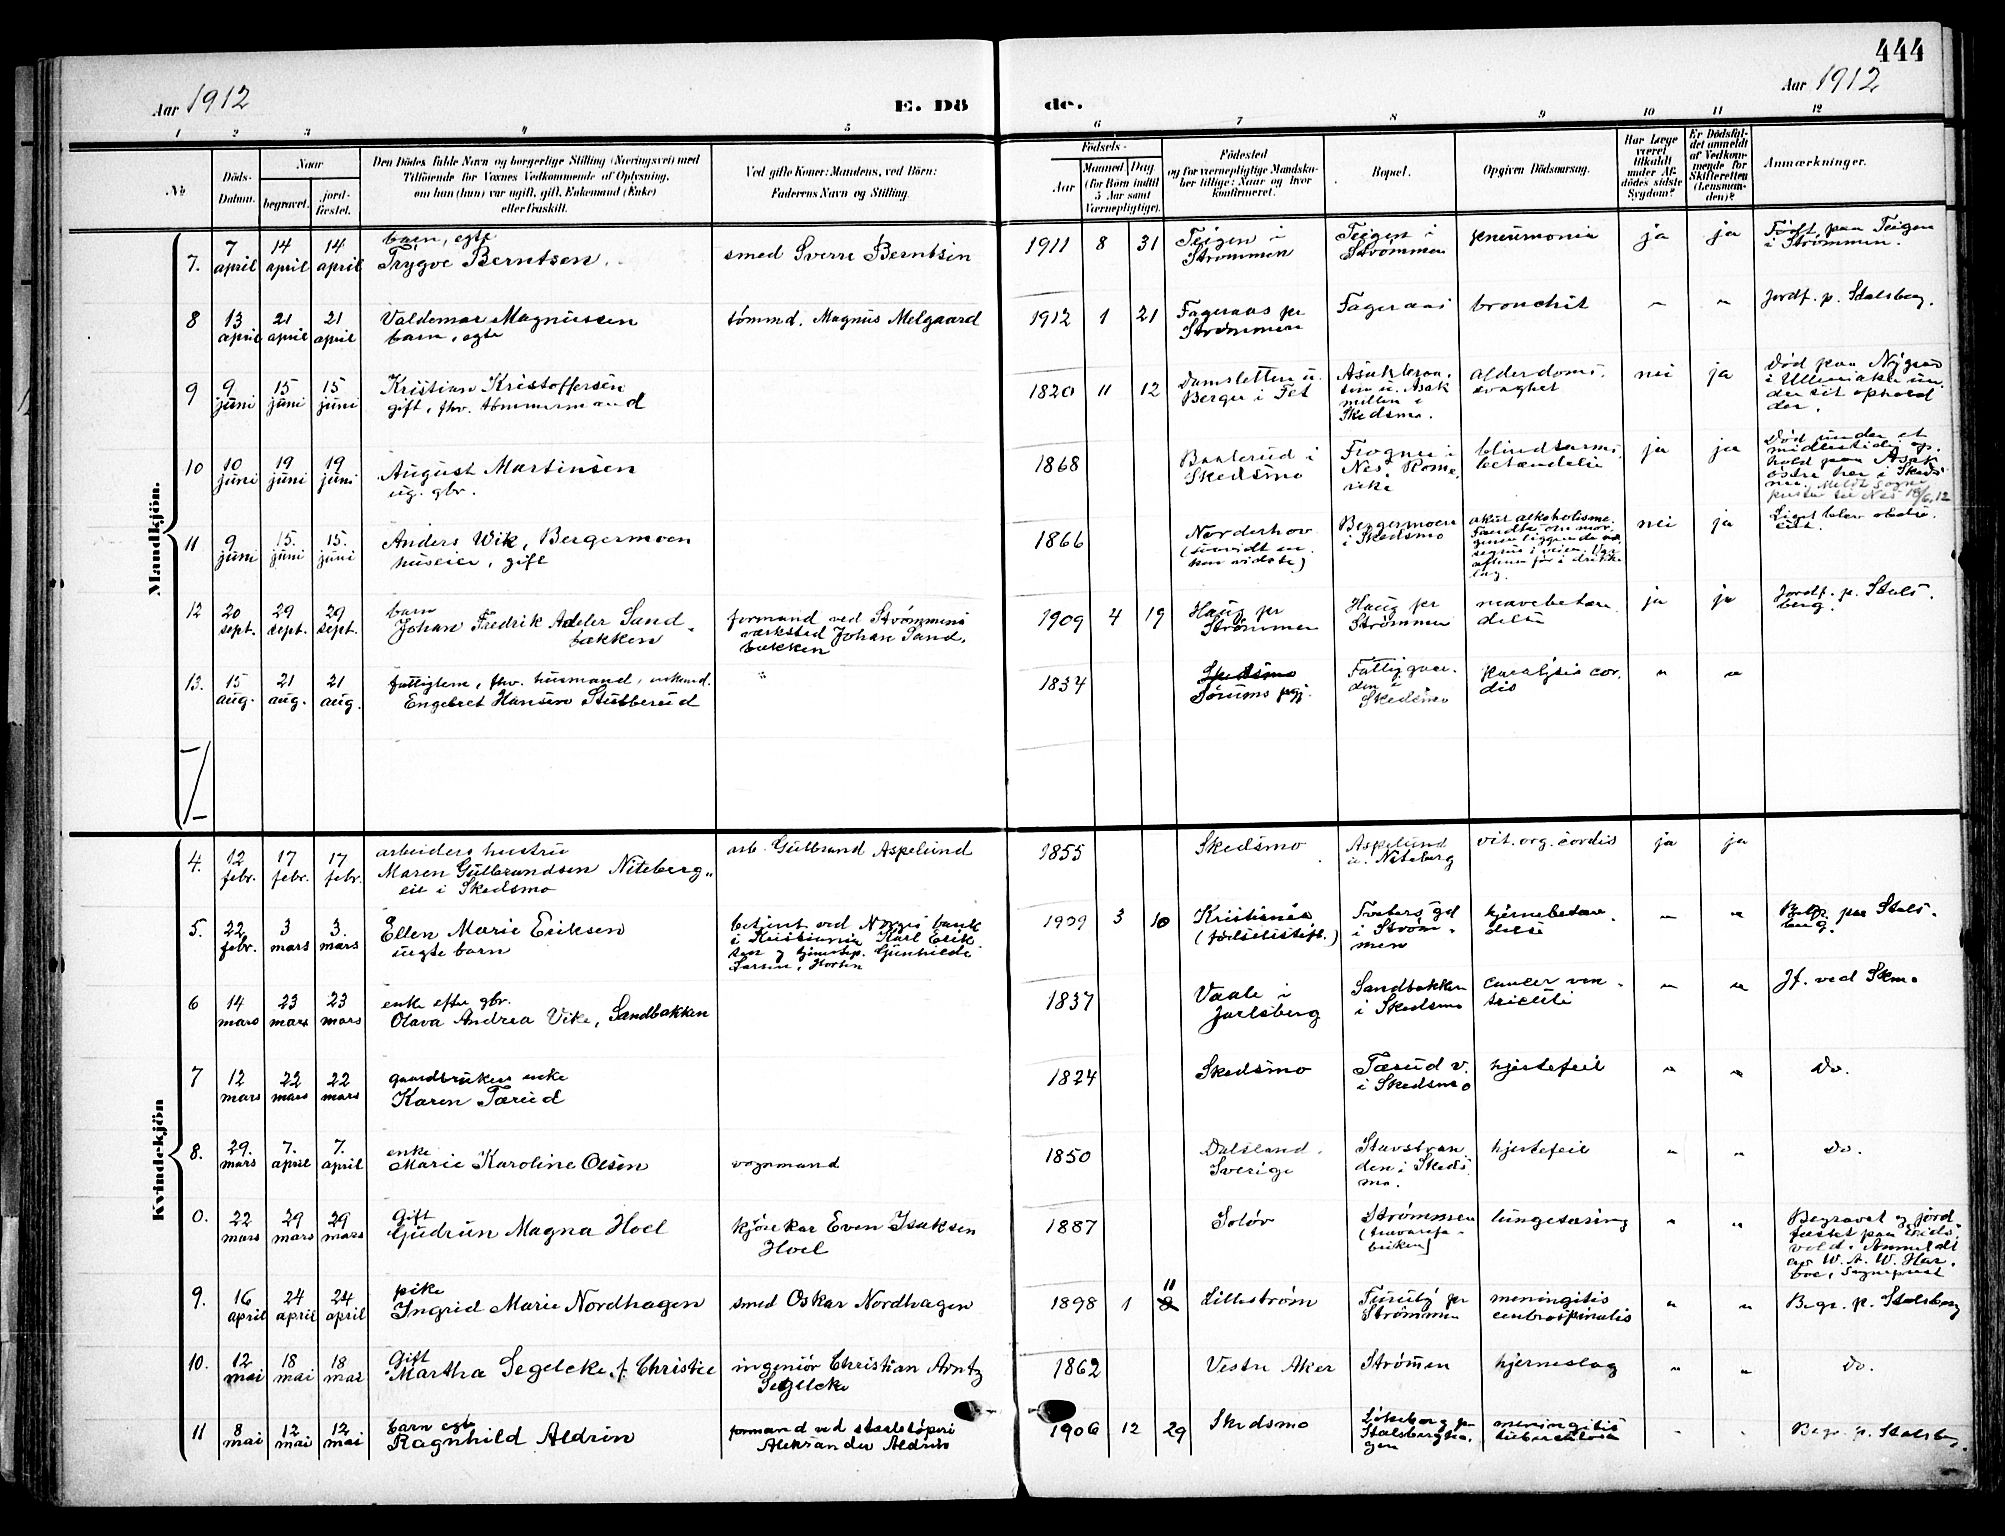 444
Aar 1912
E. Dö
de.
Aar 1912
1 2 3 4 5 6 7 8 9 10 11 12
No
Döds-
Datum.
Naar
begravet.
jord-
fæstet.
Den Dödes fulde Navn og borgerlige Stilling (Næringsvei) med
Tilföiende for Voxnes Vedkommende af Oplysning,
om hun (hun) var ugift, gift, Enkemand (Enke)
eller fraskilt.
Ved gifte Koner: Mandens, ved Börn:
Faderens Navn og Stilling.
Födsels-
Aar
Maaned
Dag
(for Börn indtil
5 Aar samt
Værnepligtige).
Födested
og for værnepligtige Mandskaber
tillige: Naar og hvor
konfirmeret.
Bopæl.
Opgiven Dödsaarsag.
Har Læge
været
tilkaldt
under Af-
dödes sidste
Sygdom?
Er Dödsfal-
det anmeldt
af Vedkom-
mende for
Skifteretten
(Lensman-
den)?
Anmærkninger.
Mandkjön.
7. 7 april 14 april 14 april
barn, egte
Trygve Berntsen.
smed Sverre Berntsen
1911 8 31
Teigen i
Strømmen
Teigen i
Strømmen
pneumonia
ja ja
Født paa Teigen
i Strømmen.
8 13 april 21 april 21 april
Valdemar Magnussen
barn, egte
tømmd. Magnus Melgaard
1912 1 21
Fageraas pr
Strømmen
Fageraas
bronchit
" "
Jordf. p. Stalsberg.
9 9 juni 15 juni 15 juni
Kristian Kristoffersen
gift, fhv. tømmermand
1820 11 12
Damsletten u.
Berger i Fet
Asak
i
Skedsmo.
alderdoms-
svaghet
nei ja
Død paa
i Ullensaker un-
der sit ophold
der.
10 10 juni 19 juni 19 juni
August Martinsen
ug. gbr.
1868
i
Skedsmo
Frogner i
Nes Rome-
rike
blindtarms-
betændelse
ja ja
Død under et
midlertidig op-
hold paa Asak
østre her i Skeds-
mo. Meldt sogne-
presten til Nes 18/6.12
11 9 juni 15. juni 15. juni
Anders Wik, Bergermoen
huseier, gift
1866
Norderhov
(saavidt en-
ken vidste)
Bergermoen
i Skedsmo
akut alkoholisme.
Fandtes om mor-
genen liggende
i veien.
aftenen før i drikke-
lag.
nei ja
Liget blev
12 20 sept. 29 sept. 29 sept.
barn
Johan Fredrik Adeler Sand-
bakken
formand ved Strømmens
værksted Johan Sand-
bakken
1909 4 19
Haug pr
Strømmen
Haug pr
Strømmen
mavebetæn-
delse
ja ja
Jordf. p. Stals-
berg.
13. 15 aug. 21 aug. 21 aug.
fattiglem, fhv. husmand, enkemd.
Engebret Hansen Stubberud
"
1834
Skedsmo
Sørums pgj.
Fattiggaar-
den i
Skedsmo
paralysis cor-
dis
" "
Kvindekjön
4. 12 febr. 17 febr. 17 febr.
arbeiders hustru
Maren Gulbrandsen Niteberg-
eie i Skedsmo
arb. Gulbrand Aspelund
1855
Skedsmo
Aspelund
u. Niteberg
vit. org. cordis
ja ja
5. 22 febr. 3 mars 3. mars
Ellen Marie Eriksen
uegte barn
betjent ved Norges bank
i Kristiania Karl Erik-
sen og tjenestep. Gunhilde
Larsen, Horten
1909 3 10
Kristiania
(fødselsstift.)
Tveters gd
i Strøm-
men
hjernebetæn-
delse
" "
Begr. paa Stals-
berg.
6 14 mars 23 mars 23 mars
enke efter gbr.
Olava Andrea Vike, Sandbakken
1837
Vaale i
Jarlsberg
Sandbakken
i Skedsmo
cancer ven-
triculi
" "
Jf. ved Skmo
7 12 mars 22 mars 22 mars
gaardbrukers enke
Karen Tærud
1824
Skedsmo
Tærud v.
i Skedsmo
hjertefeil
" "
Do.
8. 29. mars 7. april 7. april
enke
Marie Karoline Olsen
vognmand
1850
Dalsland.
Sverige
Stavstran-
den i Skeds-
mo.
hjertefeil
" "
Do.
0. 22 mars 29 mars 29 mars
Gift
Gudrun Magna Hoel
kjørekar Even Isaksen
Hoel
1887
Solør
Strømmen
(travarefa-
briken)
lungetæring
" "
Begravet og jord-
fæstet paa Eids-
vold. Anmeldt
av W. A. W. Har-
boe, Sogneprest
9. 16 april 24 april 24 april
pike
Ingrid Marie Nordhagen
smed Oskar Nordhagen
1898 1 11 8
Lillestrøm
Furuly pr
Strømmen
meningitis
cerebrospinalis
" "
Begr. p. Stalsberg
10. 12 mai 18 mai 18 mai
Gift
Martha Segelcke f. Christie
ingeniør Christian Arntz
Segelcke
1862
Vestre Aker
Strømmen
hjerneslag
" "
Do.
11 8 mai 12 mai 12 mai
barn egte
Ragnhild Aldrin
formand ved staalstøperi
Aleksander Aldrin
1906 12 29
Skedsmo
pr
Stalsbergha-
gen
meningitis
tuberculosa
" "
Begr. p. Stalsberg.